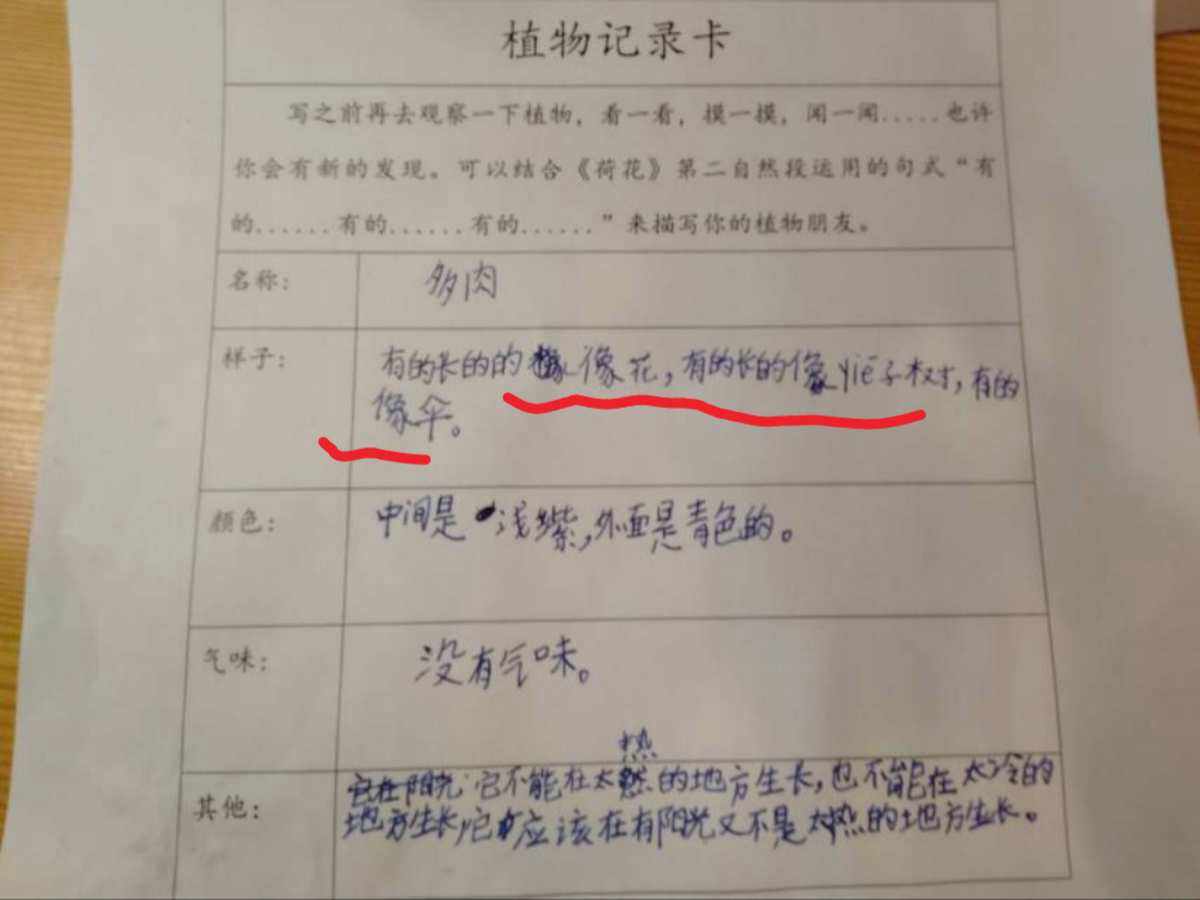 植物记录卡
写之前再去观察一下植物，看一看，摸一摸，闻一闻.....也许
你会有新的发现。可以结合《荷花》第二自然段运用的句式“有
的......有的......有的......”来描写你的植物朋友。
名称：
多肉
样子：
有的长的的像花，有的长的像yiē子树，有的
像伞。
颜色：
中间是浅紫，外面是青色的。
气味：
没有气味。
其他：
热
它在阳光它不能在太的地方生长，也不能在太冷的
地方生长，它应该在有阳光又不是太热的地方生长。